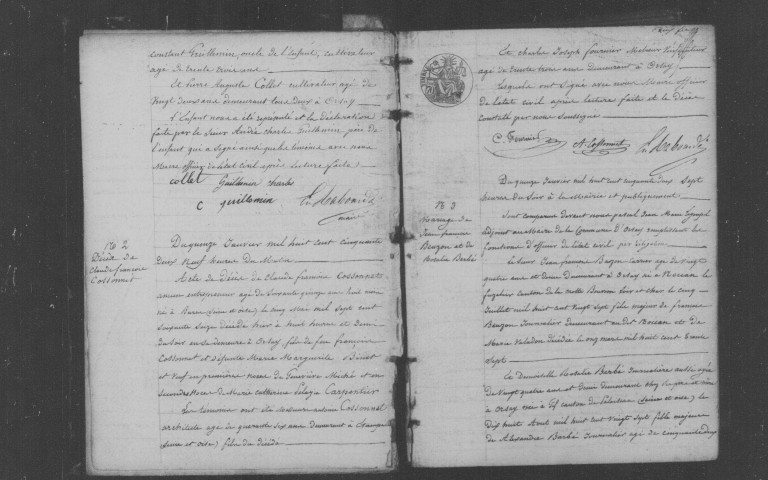 constant Guillemin, oncle de l'Enfant, cultivateur
agé de trente trois ans
Et Pierre Auguste Collet cultivateur agé de
Vingt deux ans demeurant tous deux à Orsay
L'Enfant nous a été représenté et la déclaration
faite par le Sieur André Charles Guillemin, père de
l'enfant qui a Signé ainsi que les témoins avec nous
Maire officier de l'état civil après lecture faite.
collet Guillemin charles
C guillemin
maire
N° 2
Décès de
Claude françois
Cossonnet
Du quinze Janvier mil huit cent cinquante
deux Neuf heures du Matin
Acte de Décès de Claude françois Cossonnet
ancien entrepreneur agé de Soixante quinze ans huit mois
né à (Seine et oise) le cinq Mai mil Sept cent
Soixante Seize décédé hier à huit heures et demie
du soir en sa demeure à Orsay, fils de feu françois
Cossonnet et défunte Marie Marguerite
et Veuf en premières noces de Geneviève et en
secondes Noces de Marie Catherine Carpentier
Les témoins ont été Messieurs antoine Cossonnet
architecte agé de quarante six ans demeurant à
(Seine et oise) fils du décédé
Et Charles Joseph fournier Monsieur
agé de trente trois ans demeurant à Orsay
Lesquels ont Signé avec nous Maire officier
de l'état civil après lecture faite et le Décès
constaté par nous Soussigné
C. Fournier A. Cossonnet
N° 3
Mariage de
Jean françois
Buzon et de
Rosalie Barbé
Du quinze Janvier mil huit cent cinquante deux Sept
heures du Soir à la Mairie et publiquement
Sont comparus devant nous
adjoint au Maire de la Commune d'Orsay remplissant les
fonctions d'officier de l'état civil par
Le Sieur Jean françois Buzon agé de Vingt
quatre ans et demi Demeurant à Orsay né à
canton de la Motte
Juillet mil huit cent Vingt Sept fils majeur de françois
Buzon Journalier demeurant audit et de
Marie décédée le onze mars mil huit cent trente
Sept
Et Demoiselle Rosalie Barbé Journalière agée
de Vingt quatre ans et demi demeurant chez ses père et mère
à Orsay née à canton de Palaiseau (Seine et oise) le
dix huit Aout mil huit cent Vingt Sept fille majeure
de Alexandre Barbé Journalier agé de cinquante deux